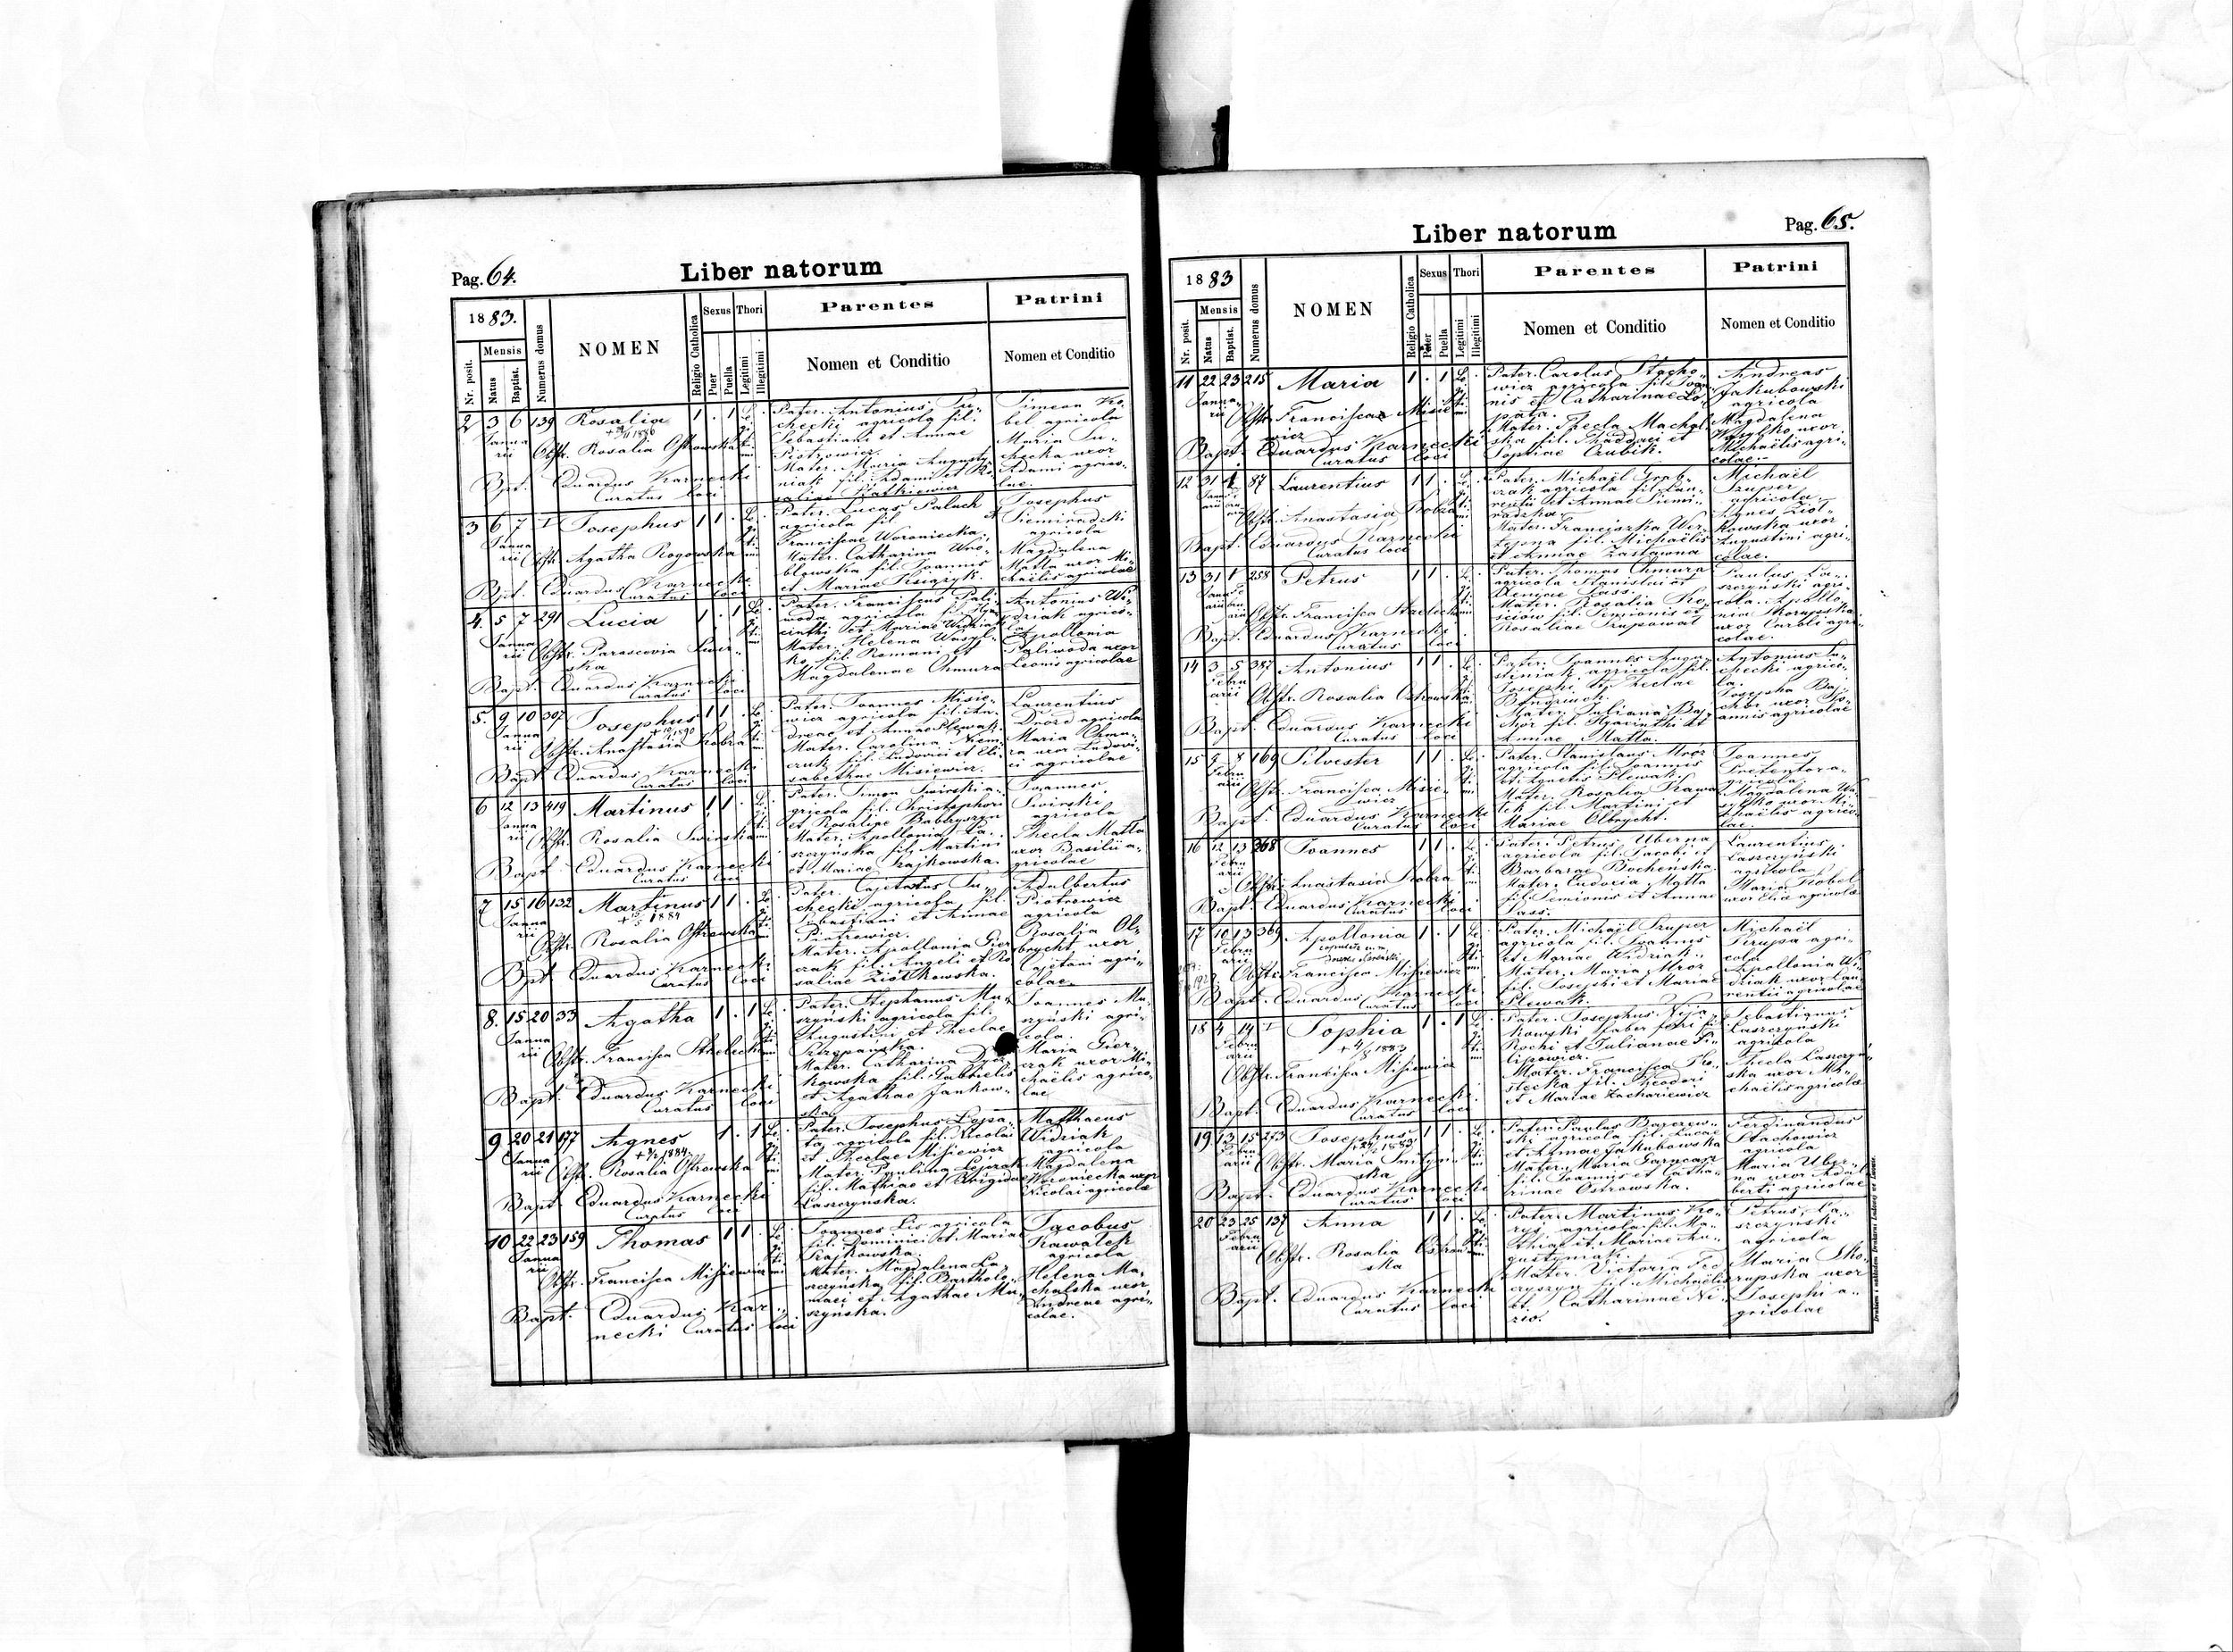 Pag. 64.
Liber natorum
1883.
Nr. posit.
Mensis
Natus
Baptist.
Numerus domus
NOMEN
Religio Catholica
Sexus
Puer
Puella
Thori
Legitimi
Illegitimi
Parentes
Nomen et Conditio
Patrini
Nomen et Conditio
2 3 6 139 Rosalia 1 . 1
Janua
rii
Obstr. Rosalia Ostrowska
Bpt. Eduardus Karnecki
Curatus loci
Pater. Antonius Tu-
checki agricola fil.
Sebastiani et Annae
Piotrowicz.
Mater. Maria Augusty-
niak fil. Adami et Ro-
saliae
Simeon Ko
bel agricola
Maria Tu-
checka uxor
Adami agrico-
lae.
3 6 7 Josephus 1 1 .
Janua
rii
Obstr. Agatha Rogowska
Bpt. Eduardus Karnecki
Curatus loci
Pater. Lucas Paluch
agricola fil
Franciscae Woroniecka.
Mater. Catharina Wro-
blowska fil. Joannis
et Mariae
Josephus
Siemiradzki
agricola
Magdalena
Matla uxor Mi-
chaëlis agricolae
4. 5 7 291 Lucia 1 . 1
Janua
rii
Obstr. Parascevia
ska
Bapt. Eduardus Karnecki
Curatus loci
Pater. Franciscus Pali-
woda agricola fil. Hya-
cinthi et Mariae Widziak
Mater. Helena Wasyl-
ko fil. Romani et
Magdalenae Chmura
Antonius Wi-
dziak agrico-
la
Apollonia
Paliwoda uxor
Leonis agricolae
5. 9 10 307 Josephus 1 1 .
Janua
rii
Obstr. Anastasia Kobra
Bapt. Eduardus Karnecki
Curatus loci
Pater. Joannes Misie-
wicz agricola fil. An-
dreae et Annae Plewak.
Mater. Carolina
czuk fil. Ludovici et Eli-
sabethae Misiewicz.
Laurentius
Drozd agricola
Maria Chmu-
ra uxor Ludovi-
ci agricolae
6 12 13 419 Martinus 1 1 .
Janua
rii
Obstr. Rosalia Swirska
Bapt. Eduardus Karnecki
Curatus loci
Pater. Simon Swirski a-
gricola fil. Christophori
et Rosaliae
Mater. Apollonia La-
szczyńska fil. Martini
et Mariae Krajkowska.
Joannes
Swirski
agricola
Thecla Matla
uxor Basilii a-
gricolae
7 15 16 132 Martinus 1 1 .
1884
Janua
rii
Obstr. Rosalia Ostrowska
Bpt. Eduardus Karnecki
Curatus loci
Pater. Cajetanus Tu-
checki agricola fil.
Sebastiani et Annae
Piotrowicz.
Mater. Apollonia Gier-
czak fil. Angeli et Ro
saliae Ziółkowska.
Adalbertus
Piotrowicz
agricola
Rosalia Ol-
brycht uxor
Cajetani agri-
colae
8. 15 20 33 Agatha 1 . 1
Janua
rii
Obstr. Francisca Strelecka
Bapt. Eduardus Karnecki
Curatus loci
Pater. Stephanus Mu-
szyński agricola fil.
Augustini et Theclae
Szczepańska.
Mater. Catharina Dycz-
kowska fil. Gabrielis
et Agathae Jankow-
ska
Joannes Mu-
szyński agri-
cola.
Maria Gier-
czak uxor Mi-
chaëlis agrico-
lae
9 20 21 177 Agnes 1 . 1
1884
Janua
rii
Obstr. Rosalia Ostrowska
Bapt. Eduardus Karnecki
Curatus loci
Pater. Josephus Łopa-
ta, agricola fil. Nicolai
et Theclae Misiewicz
Mater. Paulina
fil. Mathiae et Brigidae
Laszczyńska.
Matthaeus
Widziak
agricola
Magdalena
Woroniecka uxor
Nicolai agricolae
10 22 23 159 Thomas 1 1 .
Janua
rii
Obstr. Francisca Misiewicz
Bapt. Eduardus Kar-
necki Curatus loci
Joannes Lis agricola
fil. Dominici et Mariae
Krajkowska.
Mater. Magdalena La-
szczyńska fil. Bartholo-
maei et Agathae Mu-
szyńska.
Jacobus
Kawałek
agricola
Helena Ma-
chalska uxor
Andreae agri-
colae.
Pag. 65.
Liber natorum
1883
Nr. posit.
Mensis
Natus
Baptist.
Numerus domus
NOMEN
Religio Catholica
Sexus
Puer
Puella
Thori
Legitimi
Illegitimi
Parentes
Nomen et Conditio
Patrini
Nomen et Conditio
11 22 23 215 Maria 1 . 1
Janua-
rii
Obstr. Francisca Misie
wicz
Bapt. Eduardus Karnecki
Curatus loci
Pater. Carolus Stacho-
wicz agricola fil. Joan-
nis et Catharinae Ło-
pata.
Mater. Thecla Machal
ska fil. Thaddaei et
Sophiae Czubik.
Andreas
Jakubowski
agricola
Magdalena
Wasylko uxor
Michaëlis agri-
colae.
12 31 1 87 Laurentius 1 1 .
Obstr. Anastasia Kobra
Bapt. Eduardus Karnecki
Curatus loci
Pater. Michaël Grab-
czak agricola fil. Lau-
rentii et Annae Siemi-
radzka.
Mater. Franciszka Wer-
fil. Michaëlis
et Annae Zastawna
Michaël
Szuper
agricola
Agnes Ziół-
kowska uxor
Augustini agri-
colae.
13 31 1 258 Petrus 1 1 .
Obstr. Francisca Strelecka
Bapt. Eduardus Karnecki
Curatus loci
Pater. Thomas Chmura
agricola Stanislai et
Sass.
Mater. Rosalia Ko
sciów fil. Semionis et
Rosaliae
Paulus La-
szczyński agri-
cola. Apollo-
nia Skorupska
uxor Caroli agri-
colae.
14 3 5 387 Antonius 1 1 .
Febru
arii
Obstr. Rosalia Ostrowska
Bapt. Eduardus Karnecki
Curatus loci
Pater. Joannes Augu-
styniak agricola fil.
Josephi et Theclae
Mater. Juliana Baj-
fil. Hyacinthi et
Annae Matla.
Antonius Tu-
checki agrico-
la.
Josepha Baj-
uxor Jo-
annis agricolae
15 5 8 169 Silvester 1 1 .
Febru
arii
Obstr. Francisca Misie-
wicz
Bapt. Eduardus Karnecki
Curatus loci
Pater. Stanislaus Mróz
agricola fil. Joannis
et Agnetis Plewak.
Mater. Rosalia Kawa
łek fil. Martini et
Mariae Olbrycht.
Joannes
Pretentor a-
gricola
Magdalena Wa-
sylko uxor Mi-
chaëlis agrico-
lae.
16 12 13 368 Joannes 1 1 .
Febru
arii
Obstr. Anastasia Kobra
Bapt. Eduardus Karnecki
Curatus loci
Pater. Petrus Uberna
agricola fil. Jacobi et
Barbarae Bocheńska
Mater. Eudocia Matla
fil. Semionis et Annae
Sass.
Laurentius
Laszczyński
agricola
Maria Kobel
uxor Eliae agricolae
17 10 13 369 Apollonia 1 . 1
Febru
arii
Obstr. Francisca Misiewicz
Bapt. Eduardus Karnecki
Curatus loci
Pater. Michaël Szuper
agricola fil. Joannis
et Mariae Widziak.
Mater. Maria Mróz
fil. Josephi et Mariae
Plewak.
Michaël
Krupa agri-
cola
Apollonia Wi-
dziak uxor Lau-
rentii agricolae
18 4 14 Sophia 1 . 1
1883
Febru
arii
Obstr. Francisca Misiewicz
Bapt. Eduardus Karnecki
Curatus loci
Pater. Josephus
kowski faber ferri fil
Rochi et Julianae Fi-
lipowicz.
Mater. Francisca Ko-
stecka fil. Theodori
et Mariae Zachariewicz
Sebastianus
Laszczyński
agricola
Thecla Laszczyń-
ska uxor Mi-
chaëlis agricolae
19 13 15 273 Josephus 1 1 .
1883
Febru
arii
Obstr. Maria
ska
Bapt. Eduardus Karnecki
Curatus loci
Pater. Paulus
ski agricola fil. Lucae
et Annae Jakubowska
Mater. Maria Garncarz
fil. Joannis et Catha-
rinae Ostrowska.
Ferdinandus
Stachowicz
agricola
Maria Uber-
na uxor Adal-
berti agricolae
20 23 25 137 Anna 1 1 .
Febru
arii
Obstr. Rosalia Ostrow
ska
Bapt. Eduardus Karnecki
Curatus loci
Pater. Martinus Ko-
agricola fil. Ma-
thiae et Mariae Au-
gustyniak.
Mater. Victoria Fed
fil. Michaëlis
et Catharinae
Petrus La-
szczyński
agricola
Maria Sko-
rupska uxor
Josephi a-
gricolae